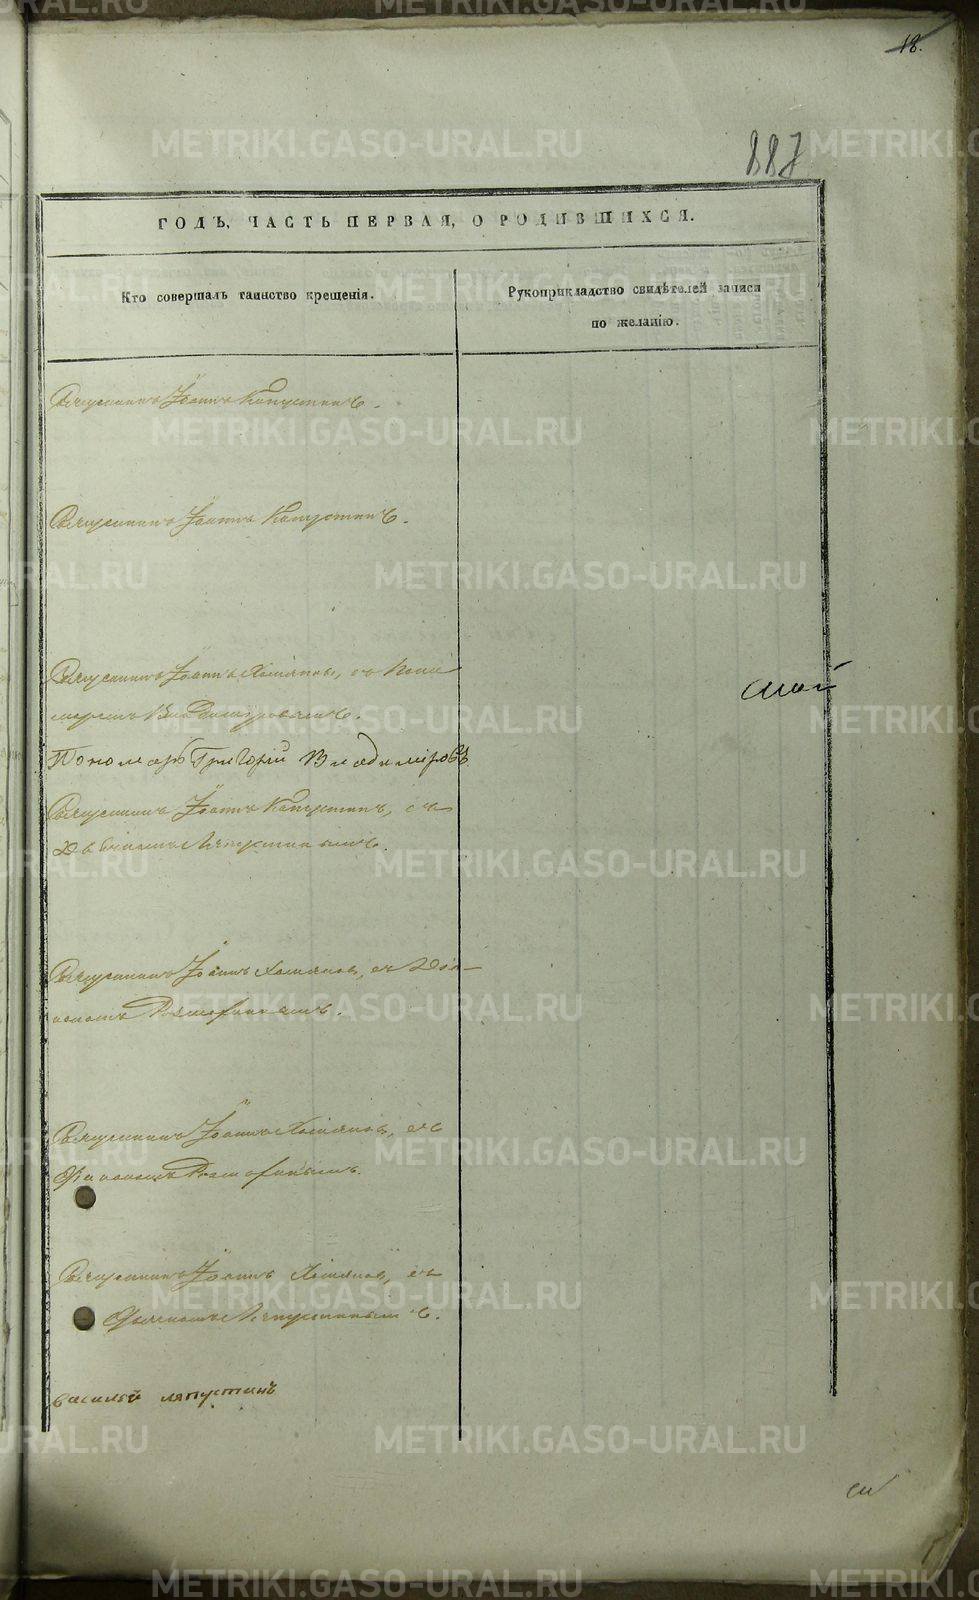 18.
887
ГОДЪ, ЧАСТЬ ПЕРВАЯ, О РОДИВШИХСЯ.
Кто совершалъ таинство крещенія.
Рукоприкладство свидѣтелей записи
по желанію.
Священникъ Іоаннъ Капустинъ.
Священникъ Іоаннъ Капустинъ.
Священникъ Іоаннъ Хомяковъ, съ Поно
маремъ Владимировымъ.
Пономарь Григорій Владимировъ
Священникъ Іоаннъ Капустинъ, съ
Дьячкомъ Ляпустинымъ.
Священникъ Іоаннъ Хомяковъ, съ Діа-
кономъ
Священникъ Іоаннъ Хомяковъ, съ
Діакономъ
Священникъ Іоаннъ Хомяковъ, съ
Дьячкомъ Ляпустинымъ.
василей ляпустинъ
METRIKI.GASO-URAL.RU